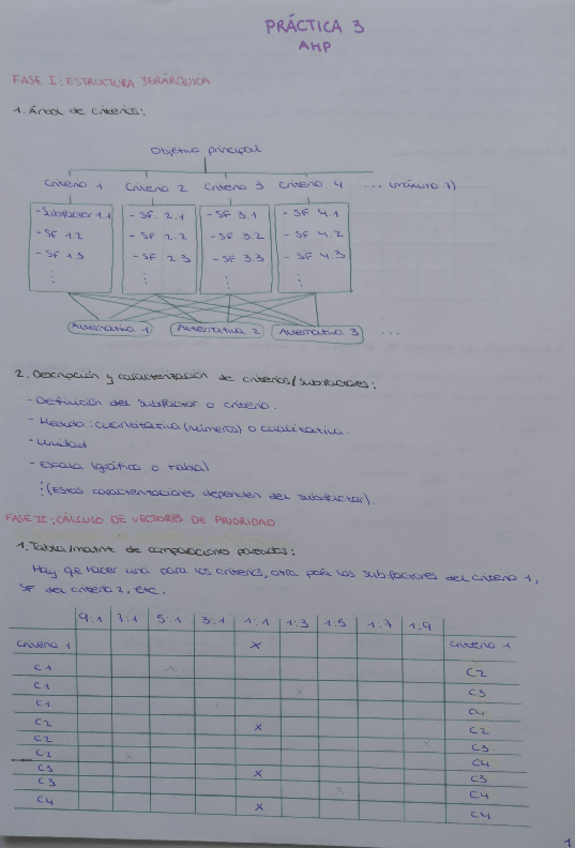 PRÁCTICA 3
AHP
FASE I: ESTRUCTURA JERÁRQUICA
1. Árbol de criterios:
Objetivo principal
Criterio 1 Criterio 2 Criterio 3 Criterio 4 ... (máximo 7)
- Subfactor 1.1 - SF. 2.1 - SF 3.1 - SF 4.1
- SF 1.2 - SF 2.2 - SF 3.2 - SF 4.2
- SF 1.3 - SF 2.3 - SF 3.3 - SF 4.3
Alternativa 1 Alternativa 2 Alternativa 3 ...
2. Descripción y caracterización de criterios/subfactores:
- Definición del subfactor o criterio.
- Medida: cuantitativa (números) o cualitativa.
- Unidad
- Escala (gráfico o tabla)
⋮ (Estas caracterizaciones dependen del subfactor).
FASE II: CÁLCULO DE VECTORES DE PRIORIDAD
1. Tabla/matriz de comparaciones pareadas:
Hay que hacer una para los criterios, otra para los subfactores del criterio 1,
SF del criterio 2, etc.
9:1 7:1 5:1 3:1 1:1 1:3 1:5 1:7 1:9
Criterio 1 x Criterio 1
C1 x C2
C1 x C3
C1 x C4
C2 x C2
C2 x C3
C2 x C4
C3 x C3
C3 x C4
C4 x C4
1